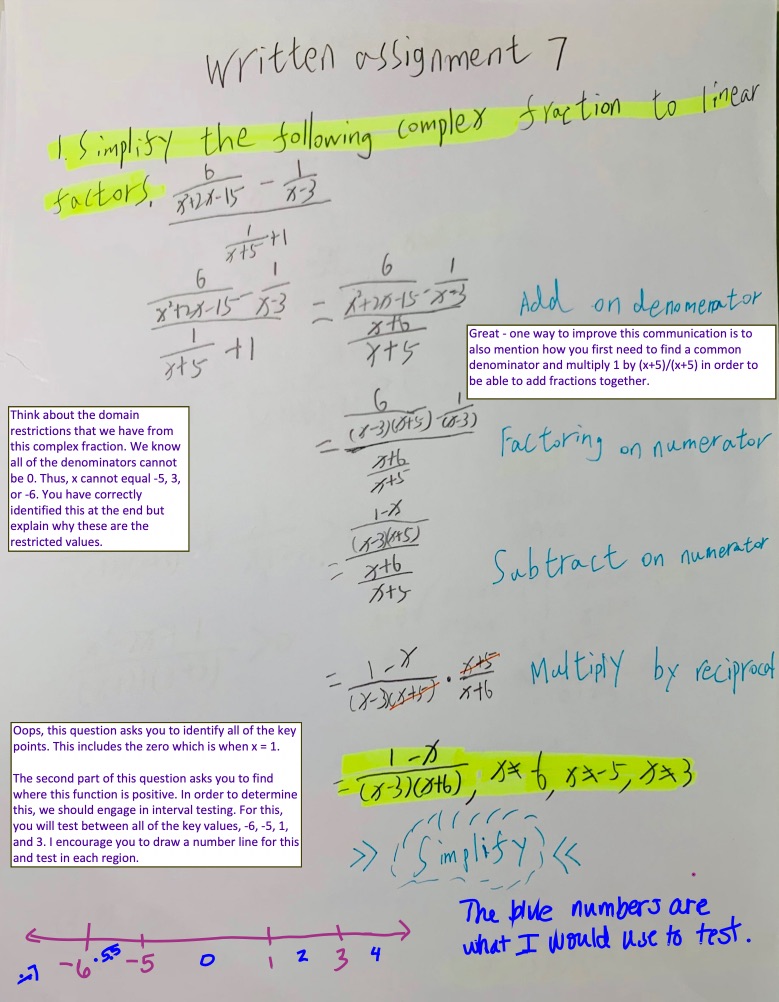 Written assignment 7
1. Simplify the following complex fraction to linear
factors. (6/(x²+2x-15) - 1/(x-3)) / (1/(x+5) + 1)
(6/(x²+2x-15) - 1/(x-3)) / (1/(x+5) + 1) = (6/(x²+2x-15) - 1/(x-3)) / ((x+6)/(x+5)) Add on denomerator
Great - one way to improve this communication is to
also mention how you first need to find a common
denominator and multiply 1 by (x+5)/(x+5) in order to
be able to add fractions together.
Think about the domain
restrictions that we have from
this complex fraction. We know
all of the denominators cannot
be 0. Thus, x cannot equal -5, 3,
or -6. You have correctly
identified this at the end but
explain why these are the
restricted values.
= (6/((x-3)(x+5)) - 1/(x-3)) / ((x+6)/(x+5)) Factoring on numerator
= ((1-x)/((x-3)(x+5))) / ((x+6)/(x+5)) Subtract on numerator
= (1-x)/((x-3)(x+5)) · (x+5)/(x+6) Multiply by reciprocal
Oops, this question asks you to identify all of the key
points. This includes the zero which is when x = 1.
The second part of this question asks you to find
where this function is positive. In order to determine
this, we should engage in interval testing. For this,
you will test between all of the key values, -6, -5, 1,
and 3. I encourage you to draw a number line for this
and test in each region.
= (1-x)/((x-3)(x+6)), x≠-6, x≠-5, x≠3
>> Simplify <<
The blue numbers are
what I would use to test.
-7 -6 -5.5 -5 0 1 2 3 4